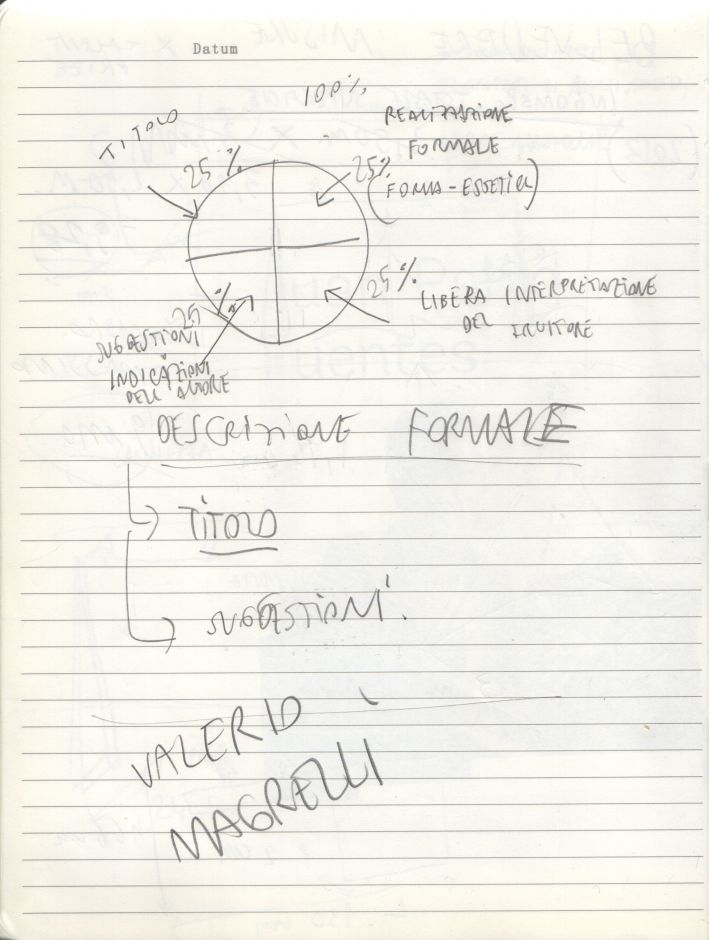 Datum
100%
TITOLO
25%
25%
REALIZZAZIONE
FORMALE
(FORMA-ESTETICA)
25%
LIBERA INTERPRETAZIONE
DEL FRUITORE
25%
SUGGESTIONI
INDICAZIONI
DELL'AUTORE
DESCRIZIONE FORMALE
TITOLO
SUGGESTIONI.
VALERIO
MAGRELLI